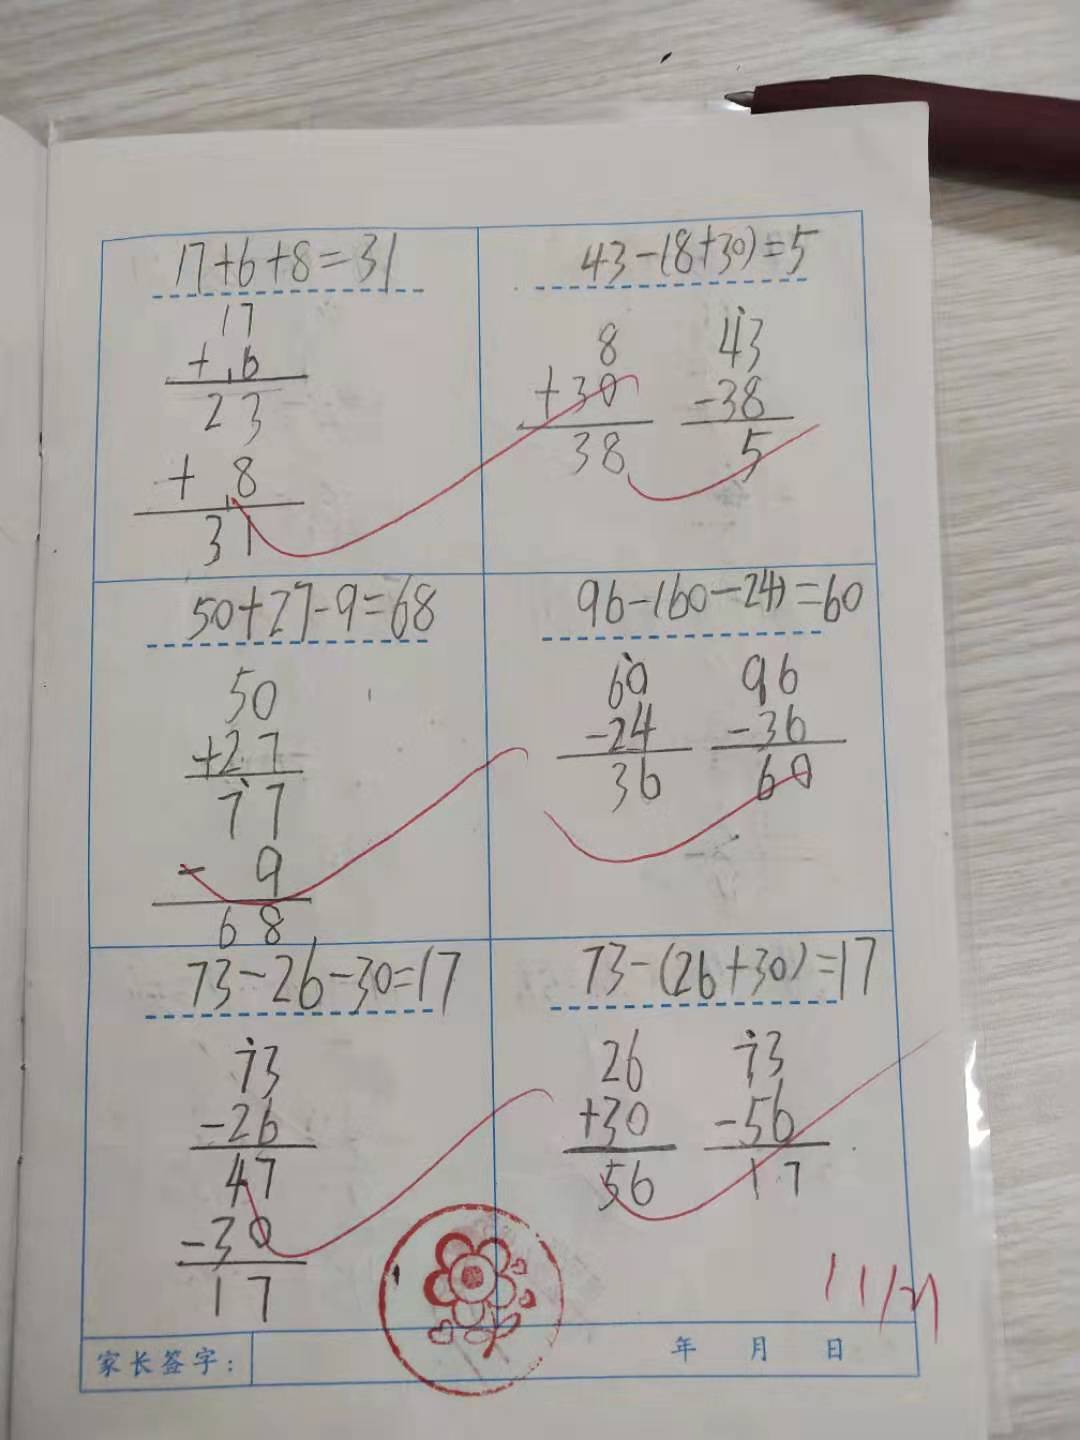 17+6+8=31
17
+ 6
23
+ 8
31
43-(8+30)=5
8
+30
38
43
-38
5
50+27-9=68
50
+27
77
- 9
68
96-(60-24)=60
60
-24
36
96
-36
60
73-26-30=17
73
-26
47
-30
17
73-(26+30)=17
26
+30
56
73
-56
17
家长签字:
年 月 日